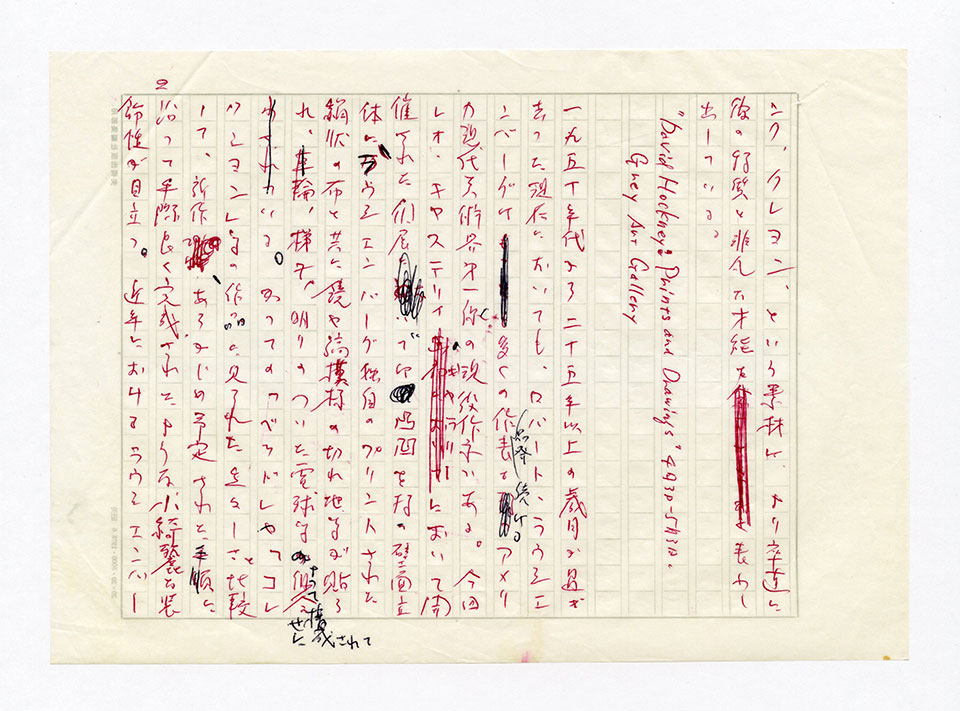 ンク、クレヨン、という素材に、より卒直に
彼の特質と非凡な才能を表わし
出している。
"David Hockney: Prints and Drawings" 4月3日-5月3日.
Grey Art Gallery
一九五十年代より二十五年以上の歳月が過ぎ
去った現在においても、ロバート・ラウシェ
ンバーグは多くの作品を発表し続けるアメリ
カ現代美術界第一線の現役作家である。今回
レオ・キャステリィにおいて開
催された個展では凸凹を持つ壁面立
体にラウシェンバーグ独自のプリントされた
絹状の布と共に鏡や縞模様の切れ地等が貼ら
れ、車輪、梯子、明りのついた電球等
によって構成されて
いる。かつての「ベッドレヤ「コレ
クション」等の作品に見られた生々しさと比較
して、新作、あらかじめ予定された手順に
沿って手際良く完成されたような小綺麗な装
飾性が目立つ。近年におけるラウシェンバー
2